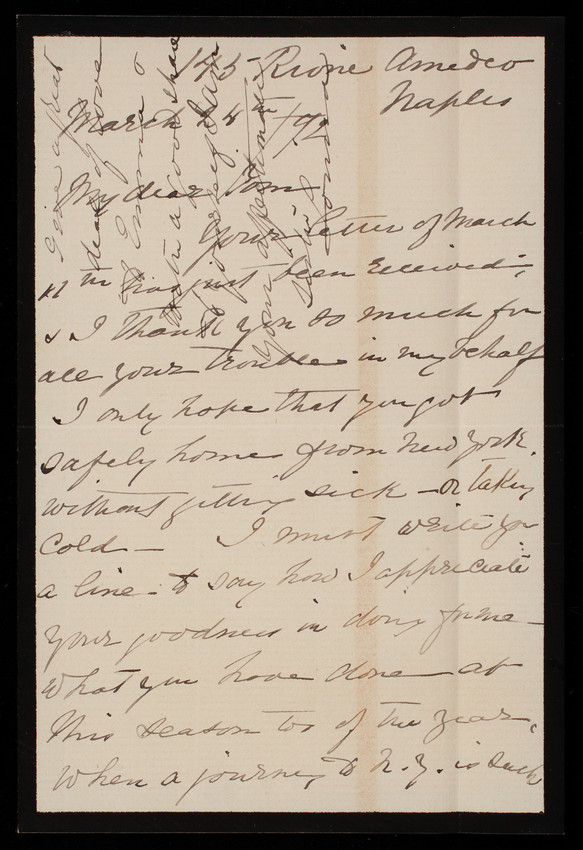 145 Rione Amedeo
Naples
March 28th /92
My dear Tom
Your letter of March
11th has just been received;
& I thank you so much for
all your trouble in my behalf
I only hope that you got
safely home from New York.
without getting sick - or taking
cold - I must write you
a line - to say how I appreciate
your goodness in doing for me -
what you have done - at
this season too of the year,
when a journey to N.Y. is such
Give a great
deal of love
to Emma &
with a good share
for yourself I am
your affectionate